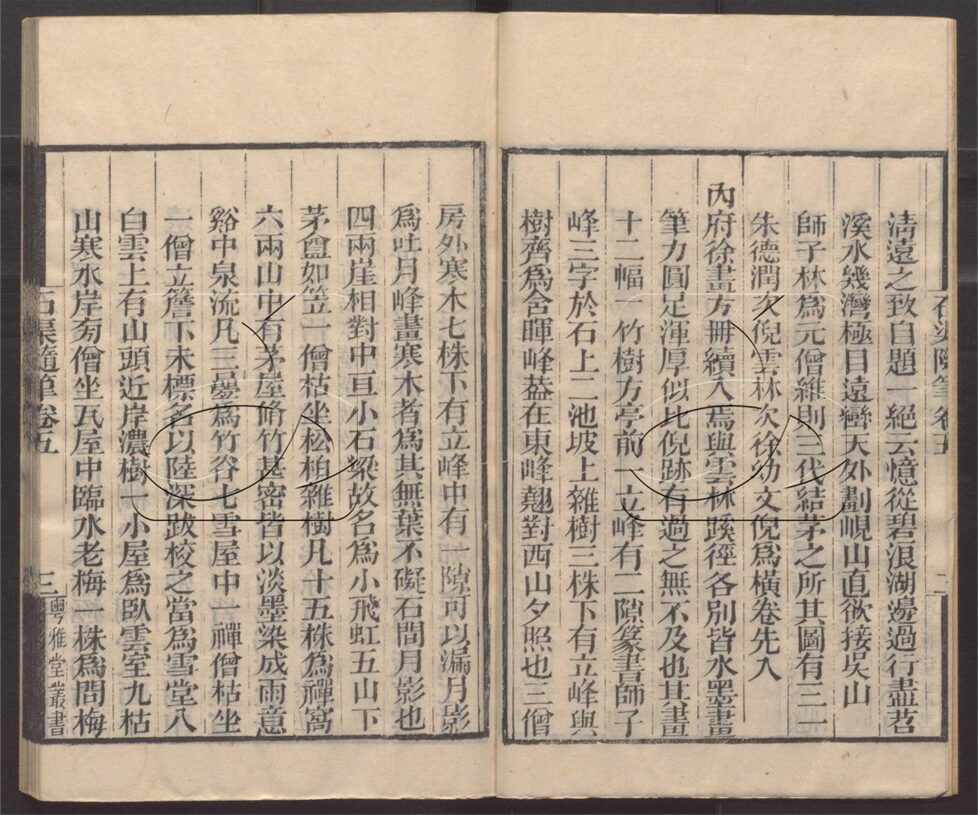 石渠隨筆卷五　二
清遠之致自題一絕云憶從碧浪湖邊過行盡苕
溪水幾灣極目遠巒天外劃峴山直欲接吳山
師子林爲元僧維則三代結茅之所其圖有三一
朱德潤次倪雲林次徐幼文倪爲橫卷先入
內府徐畫方冊續入焉與雲林蹊徑各別皆水墨畫
筆力圓足渾厚似比倪跡有過之無不及也其畫
十二幅一竹樹方亭前一立峰有二隙篆書師子
峰三字於石上二池坡上雜樹三株下有立峰與
樹齊爲含暉峰葢在東峰翹對西山夕照也三僧
房外寒木七株下有立峰中有一隙可以漏月影
爲吐月峰畫寒木者爲其無葉不礙石間月影也
四兩崖相對中亘小石梁故名爲小飛虹五山下
茅盦如笠一僧枯坐松柏雜樹凡十五株爲禪窩
六兩山中有茅屋脩竹甚密皆以淡墨染成雨意
谿中泉流凡三疊爲竹谷七雪屋中一禪僧枯坐
一僧立簷下未標名以陸深跋校之當爲雪堂八
白雲上有山頭近岸濃樹一小屋爲臥雲室九枯
山寒水岸旁僧坐瓦屋中臨水老梅一株爲問梅
石渠隨筆卷五　三　粵雅堂叢書